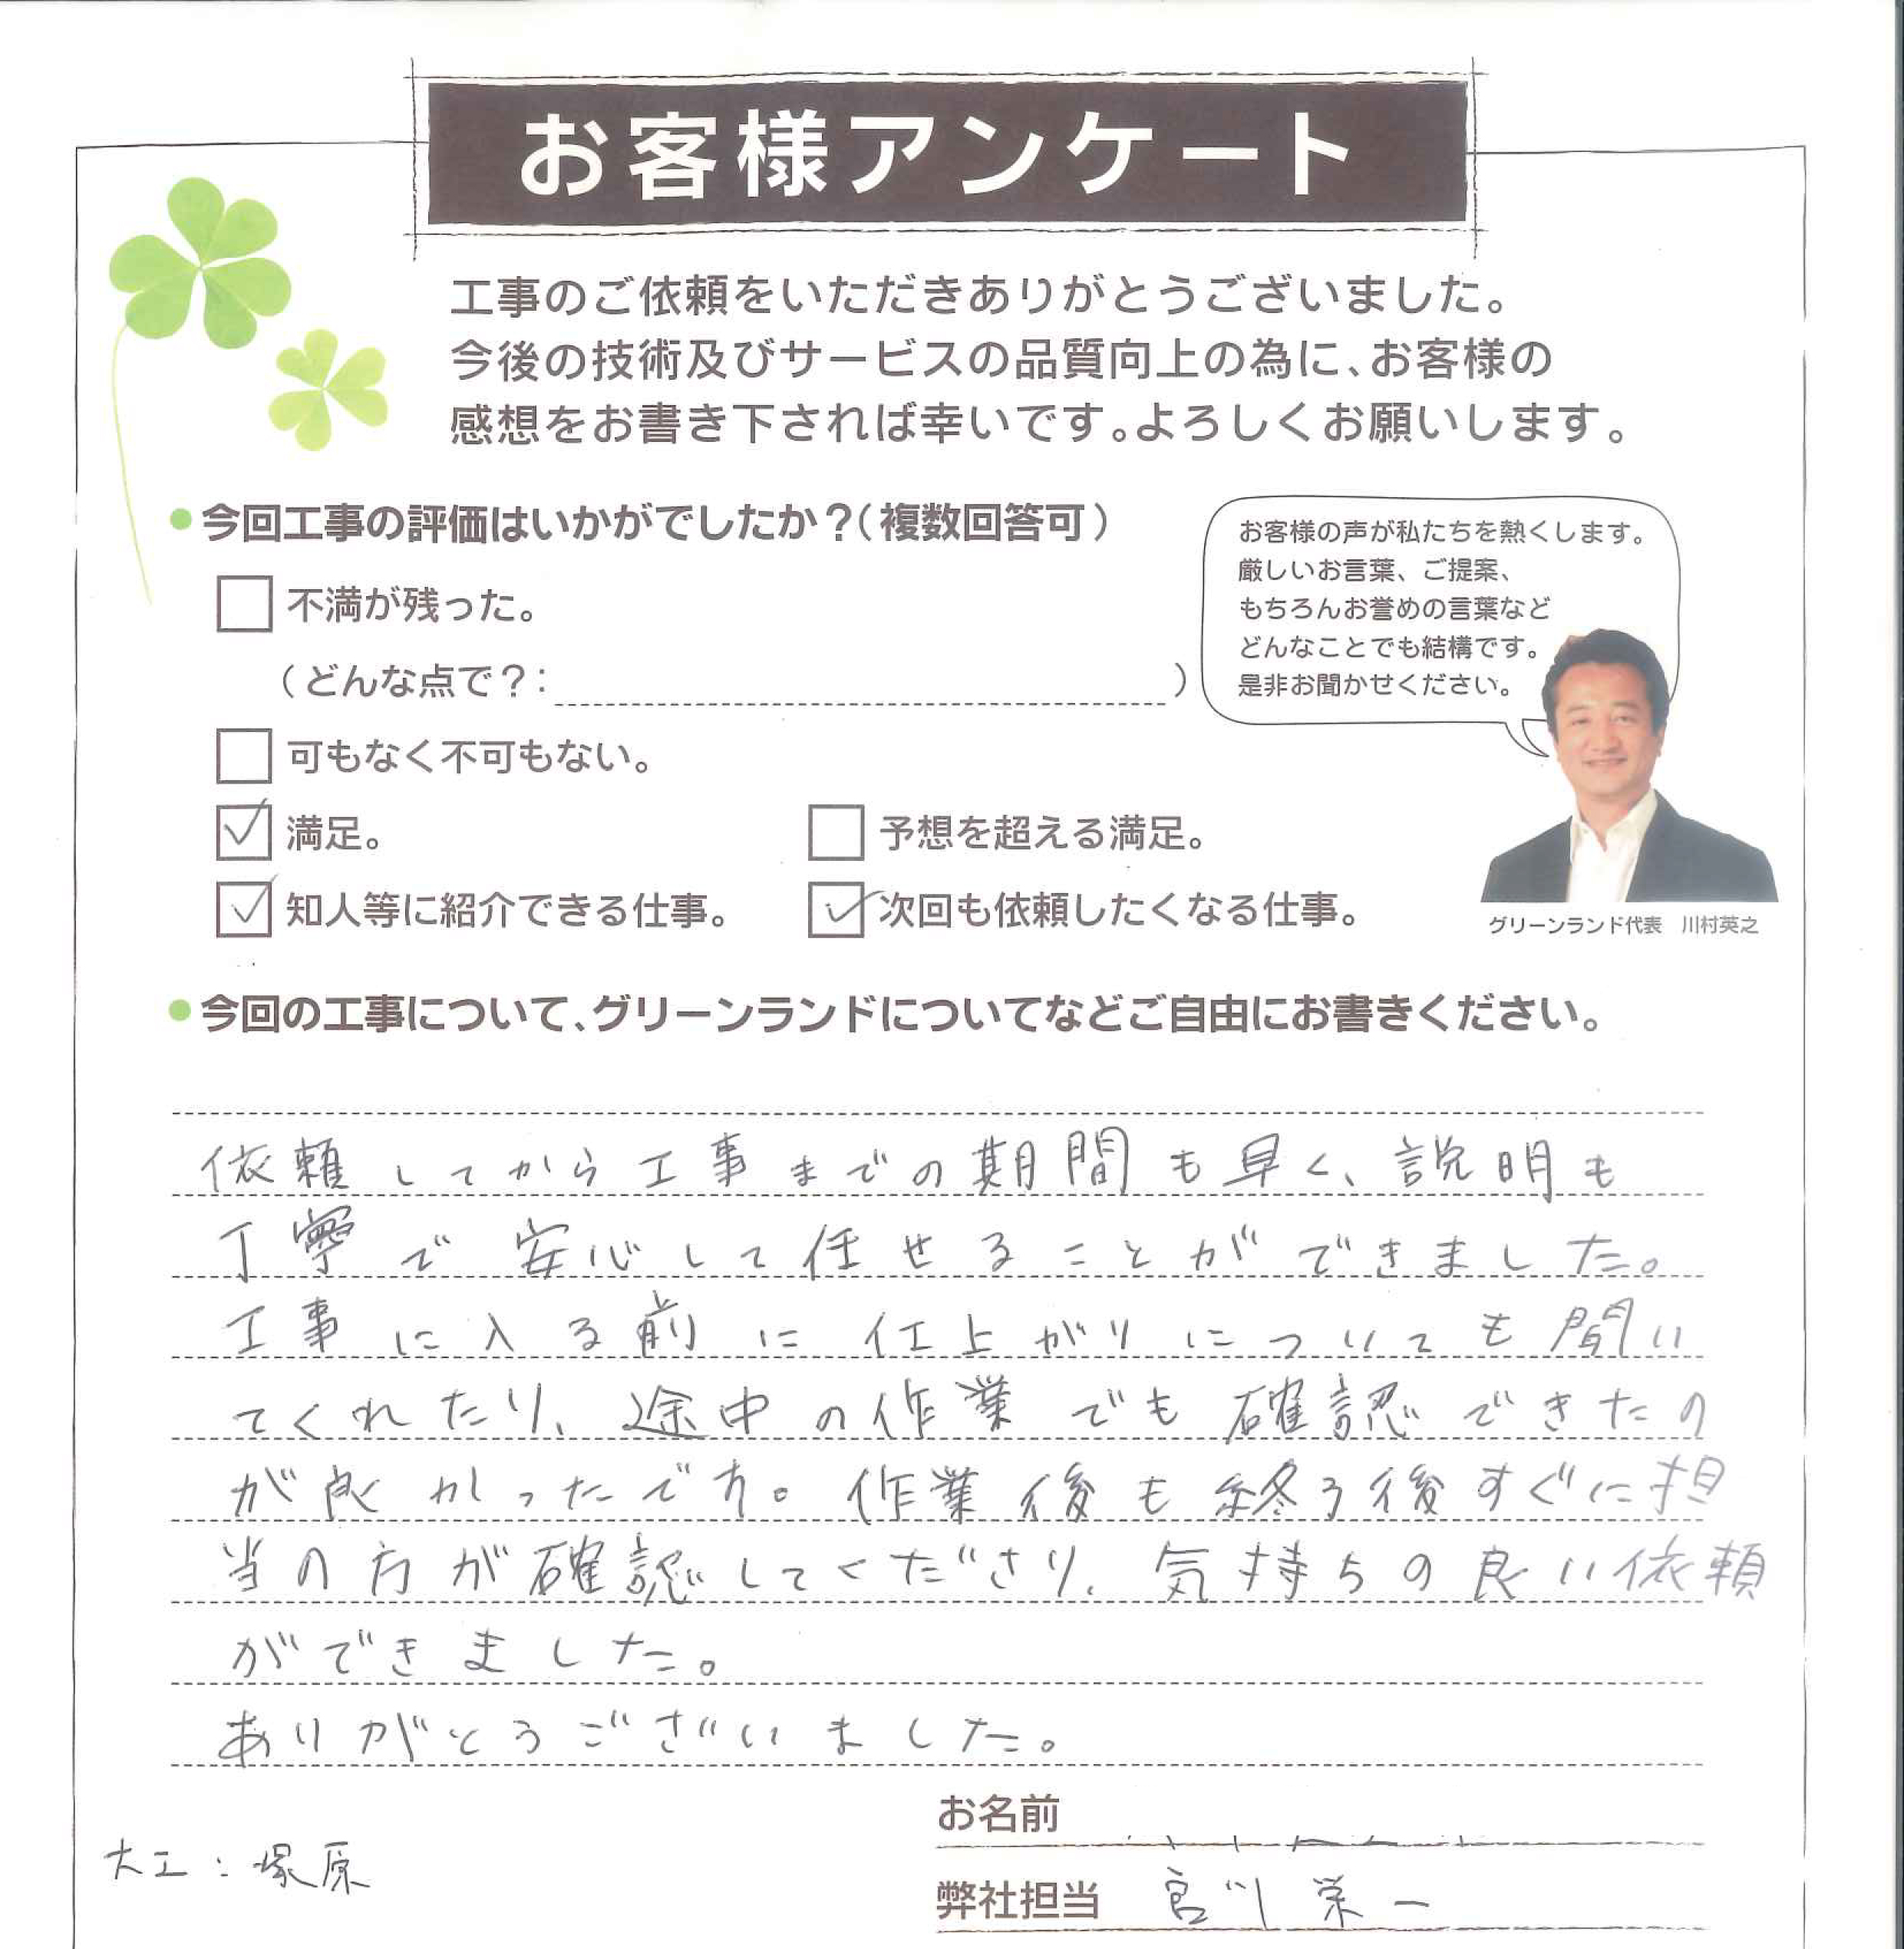 お客様アンケート
工事のご依頼をいただきありがとうございました。
今後の技術及びサービスの品質向上の為に、お客様の
感想をお書き下されば幸いです。よろしくお願いします。
●今回工事の評価はいかがでしたか?(複数回答可)
不満が残った。
(どんな点で?: )
可もなく不可もない。
満足。
予想を超える満足。
知人等に紹介できる仕事。
次回も依頼したくなる仕事。
お客様の声が私たちを熱くします。
厳しいお言葉、ご提案、
もちろんお誉めの言葉など
どんなことでも結構です。
是非お聞かせください。
グリーンランド代表 川村英之
●今回の工事について、グリーンランドについてなどご自由にお書きください。
依頼してから工事までの期間も早く、説明も
丁寧で安心して任せることができました。
工事に入る前に仕上がりについても聞い
てくれたり、途中の作業でも確認できたの
が良かったです。作業後も終る後すぐに担
当の方が確認してくださり、気持ちの良い依頼
ができました。
ありがとうございました。
お名前
大工:塚原
弊社担当 宮川 栄一